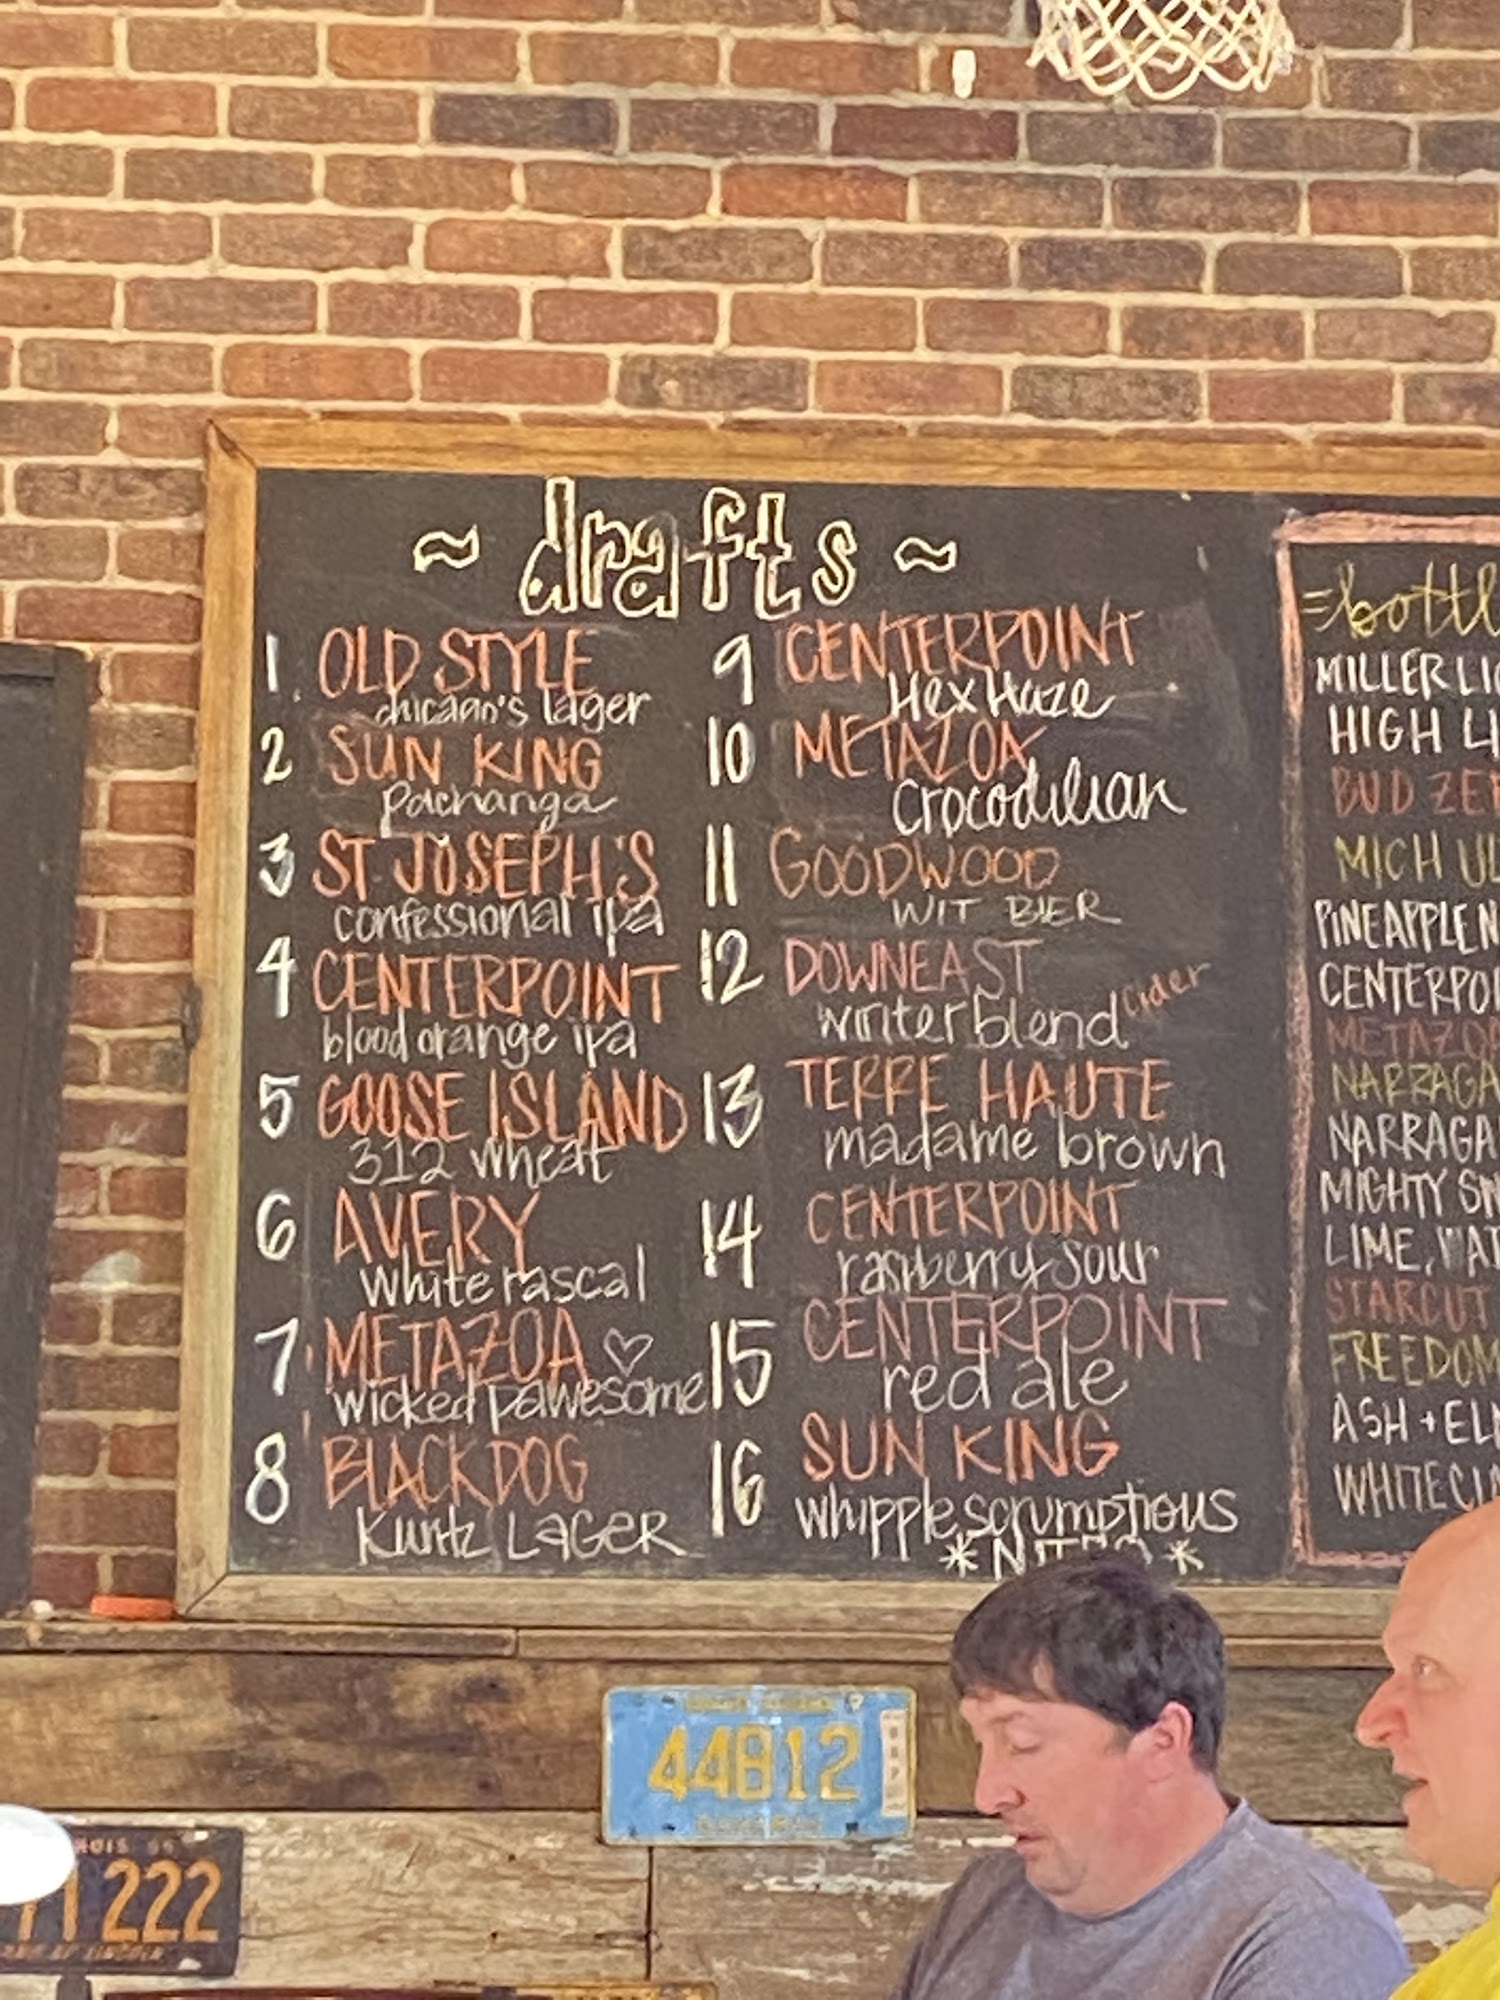 ~ drafts ~
1. OLD STYLE
chicago's lager
2 SUN KING
pachanga
3 ST. JOSEPH'S
confessional ipa
4 CENTERPOINT
blood orange ipa
5 GOOSE ISLAND
312 wheat
6 AVERY
white rascal
7 METAZOA ♡
wicked pawesome
8 BLACK DOG
Kuntz LAGER
9 CENTERPOINT
Hex Haze
10 METAZOA
Crocodilian
11 GOODWOOD
WIT BIER
12 DOWNEAST
winter blend cider
13 TERRE HAUTE
madame brown
14 CENTERPOINT
raspberry sour
15 CENTERPOINT
red ale
16 SUN KING
whipple scrumptious
* NITRO *
=bottl
MILLER LI
HIGH LI
BUD ZE
MICH UL
PINEAPPLE N
CENTERPOI
METAZOA
NARRAGA
NARRAGA
MIGHTY SW
LIME, WAT
STARCUT
FREEDOM
ASH + EL
WHITE CL
44B12
222